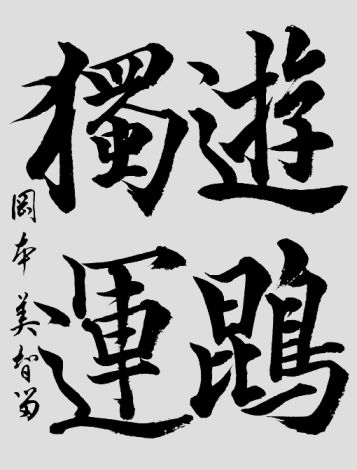 遊鵾
獨運
岡本美智留